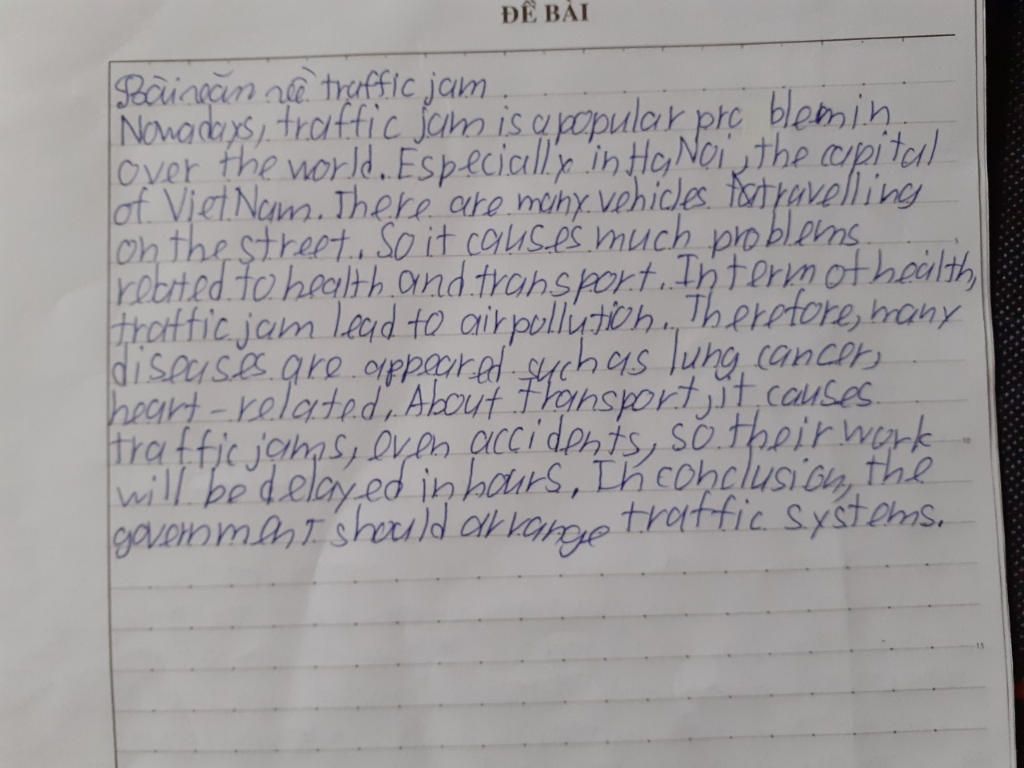 ĐỀ BÀI
Bài văn về traffic jam
Nowadays, traffic jam is a popular pro blem in
over the world. Especially in Ha Noi, the capital
of Viet Nam. There are many vehicles travelling
on the street. So it causes much problems
related to health and transport. In term of health,
traffic jam lead to air pollution. Therefore, many
diseases are appeared such as lung cancer,
heart-related. About transport, it causes
traffic jams, even accidents, so their work
will be delayed in hours. In conclusion, the
government should arrange traffic systems.
10
15